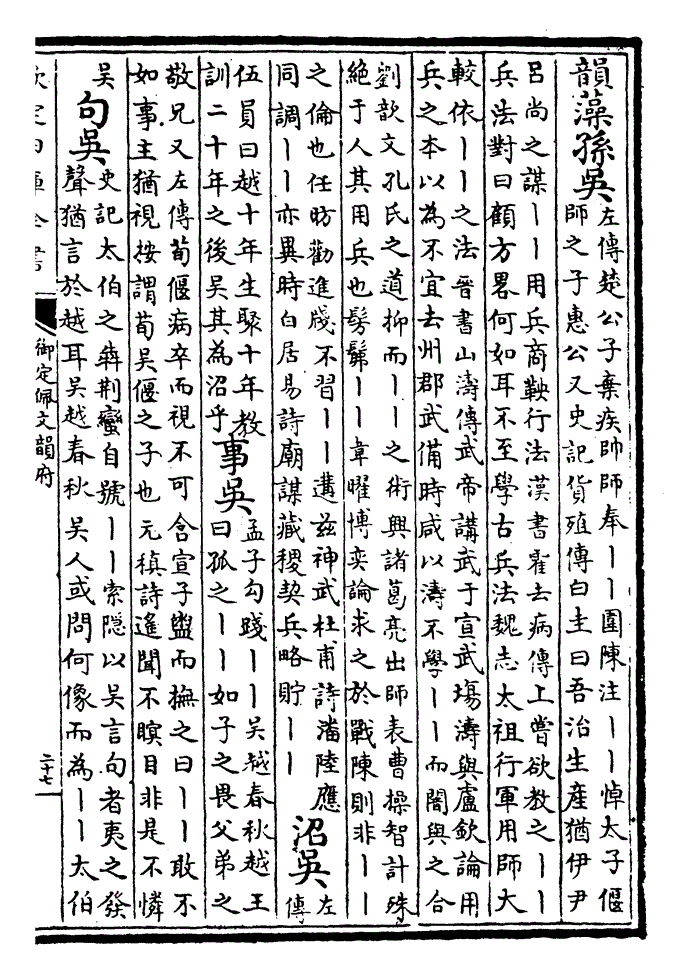 韻藻孫吳左傳楚公子棄疾帥師奉丨丨圍陳注丨丨悼太子偃
師之子惠公又史記貨殖傳白圭曰吾治生産猶伊尹
呂尚之謀丨丨用兵商鞅行法漢書霍去病傳上嘗欲教之丨丨
兵法對曰顧方畧何如耳不至學古兵法魏志太祖行軍用師大
較依丨丨之法晉書山濤傳武帝講武于宣武塲濤與盧欽論用
兵之本以為不宜去州郡武備時咸以濤不學丨丨而闇與之合
劉歆文孔氏之道抑而丨丨之術興諸葛亮出師表曹操智計殊
絶于人其用兵也髣髴丨丨韋曜博奕論求之於戰陳則非丨丨
之倫也任昉勸進牋不習丨丨遘兹神武杜甫詩潘陸應
同調丨丨亦異時白居易詩廟謀藏稷契兵略貯丨丨
沼吳左
傳
伍員曰越十年生聚十年教
訓二十年之後吳其為沼乎
事吳孟子勾踐丨丨吳越春秋越王
曰孤之丨丨如子之畏父弟之
敬兄又左傳荀偃病卒而視不可含宣子盥而撫之曰丨丨敢不
如事主猶視按謂荀吳偃之子也元稹詩遙聞不瞑目非是不憐
吳
句吳史記太伯之犇荆蠻自號丨丨索隱以吳言句者夷之發
聲猶言於越耳吳越春秋吳人或問何像而為丨丨太伯
欽定四庫全書
御定佩文韻府
二十七